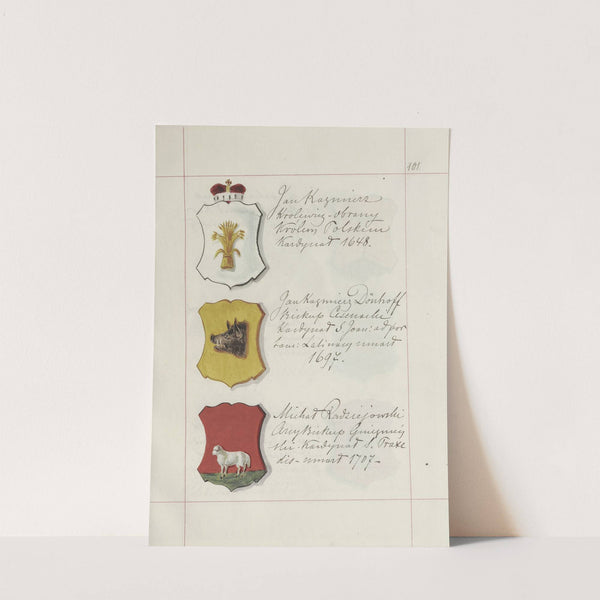 101.
Jan Kazmierz
Królewicz - obrany
Królem Polskim
Kardynał 1648.
Jan Kazmierz Dönhoff
Biskup Cesenski
Kardynał S. Joan: ad por
tam: Latinam umarł
1697.
Michał Radziejowski
Arcy Biskup Gnieznień
ski Kardynał S. Praxe
dis - umarł 1707 -